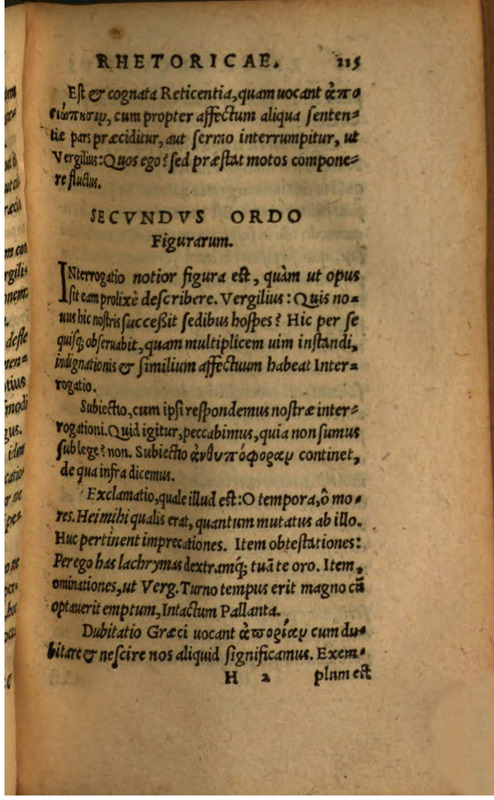 RHETORICAE. 115
Est & cognata Reticentia, quam uocant ἀπο
σιώπησιν, cum propter affectum aliqua senten-
tiæ pars præciditur, aut sermo interrumpitur, ut
Vergilius: Quos ego? sed præstat motos compone-
re fluctus.
SECVNDVS ORDO
Figurarum.
INterrogatio notior figura est, quàm ut opus
sit eam prolixè describere. Vergilius: Quis no-
uus hic nostris successit sedibus hospes? Hic per se
quisq; obseruabit, quam multiplicem uim instandi,
indignationis & similium affectuum habeat Inter-
rogatio.
Subiectio, cum ipsi respondemus nostræ inter-
rogationi. Quid igitur, peccabimus, quia non sumus
sub lege? non. Subiectio ἀνθυπόφοραν continet,
de qua infra dicemus.
Exclamatio, quale illud est: O tempora, ô mo-
res. Hei mihi qualis erat, quantum mutatus ab illo.
Huc pertinent imprecationes. Item obtestationes:
Per ego has lachrymas dextramq; tuã te oro. Item,
ominationes, ut Verg. Turno tempus erit magno cũ
optauerit emptum, Intactum Pallanta.
Dubitatio Græci uocant ἀπορίαν cum du-
bitare & nescire nos aliquid significamus. Exem-
H 2 plum est